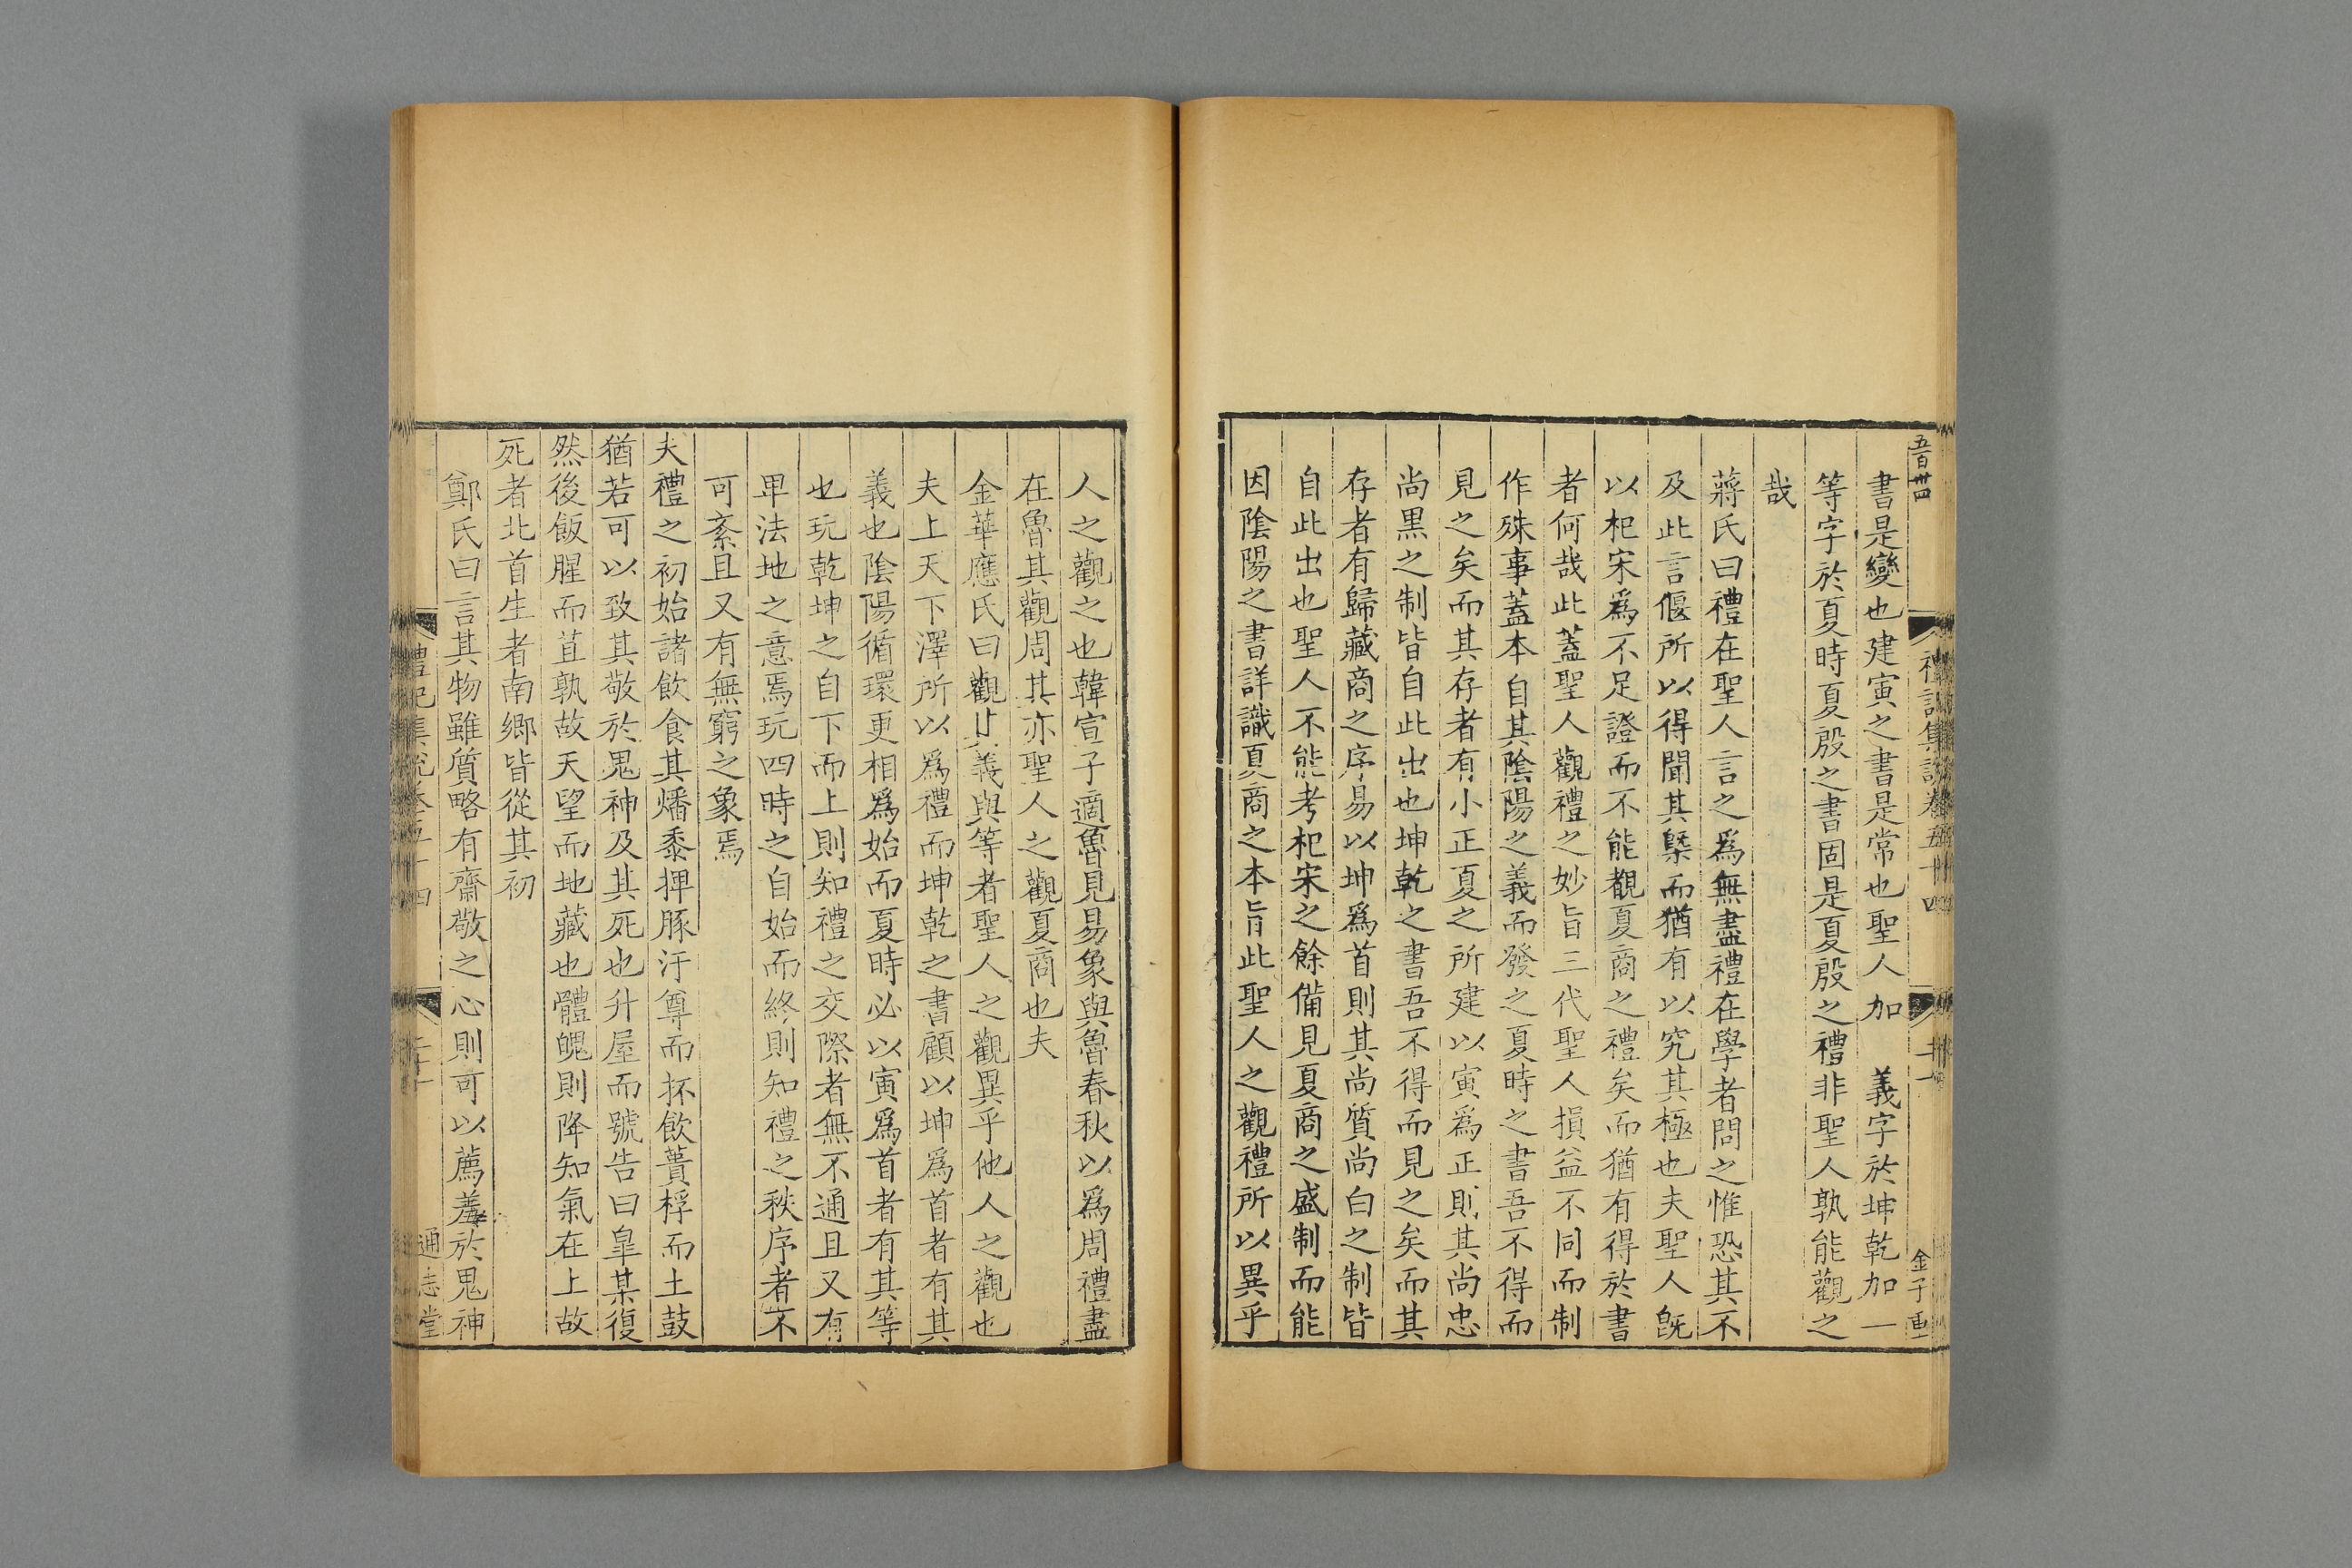 五百卅四
禮記集說卷五十四
二十一
金子重
書是變也建寅之書是常也聖人加 義字於坤乾加一
等字於夏時夏殷之書固是夏殷之禮非聖人孰能觀之
哉
蔣氏曰禮在聖人言之爲無盡禮在學者問之惟恐其不
及此言偃所以得聞其槩而猶有以究其極也夫聖人旣
以杞宋爲不足證而不能觀夏商之禮矣而猶有得於書
者何哉此蓋聖人觀禮之妙旨三代聖人損益不同而制
作殊事蓋本自其陰陽之義而發之夏時之書吾不得而
見之矣而其存者有小正夏之所建以寅爲正則其尚忠
尚黑之制皆自此出也坤乾之書吾不得而見之矣而其
存者有歸藏商之序易以坤爲首則其尚質尚白之制皆
自此出也聖人不能考杞宋之餘備見夏商之盛制而能
因陰陽之書詳識夏商之本旨此聖人之觀禮所以異乎
人之觀之也韓宣子適魯見易象與魯春秋以爲周禮盡
在魯其觀周其亦聖人之觀夏商也夫
金華應氏曰觀其義與等者聖人之觀異乎他人之觀也
夫上天下澤所以爲禮而坤乾之書顧以坤爲首者有其
義也陰陽循環更相爲始而夏時必以寅爲首者有其等
也玩乾坤之自下而上則知禮之交際者無不通且又有
卑法地之意焉玩四時之自始而終則知禮之秩序者不
可紊且又有無窮之象焉
夫禮之初始諸飲食其燔黍捭豚汙尊而抔飲蕢桴而土鼓
猶若可以致其敬於鬼神及其死也升屋而號告曰皐某復
然後飯腥而苴孰故天望而地藏也體魄則降知氣在上故
死者北首生者南鄉皆從其初
鄭氏曰言其物雖質略有齋敬之心則可以薦羞於鬼神
禮記集說卷五十四
二十一
通志堂